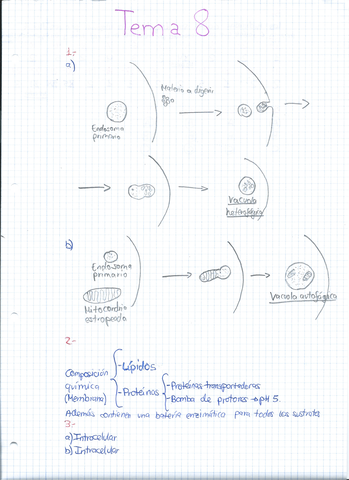 Tema 8
1.-
a)
Materia a digerir
Endosoma
primario
Vacuola
heterofágica
b)
Endosoma
primario
Mitocondria
estropeada
Vacuola autofágica
2.-
Composición
química
(Membrana)
-Lípidos
-Proteínas
-Proteínas transportadoras
-Bomba de protones → pH 5
Además contiene una batería enzimática para todos los sustratos
3.-
a) Intracelular
b) Intracelular